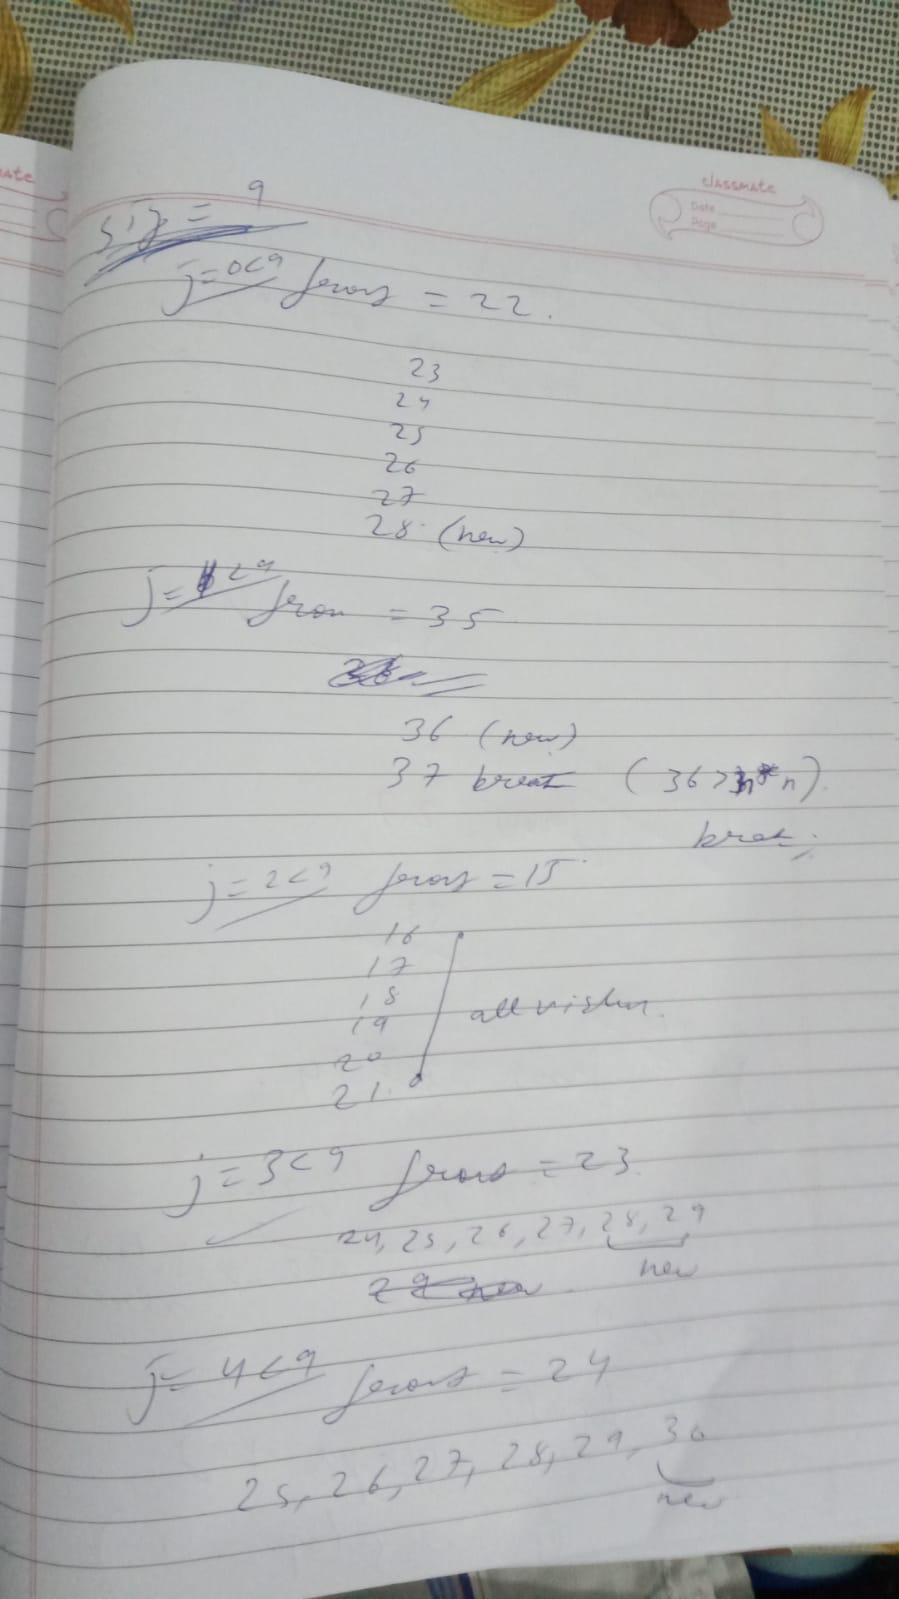 classmate
Date
Page
siz = 9
j=0<9 front = 22.
23
24
25
26
27
28 (new)
j=1<9 fron = 35
36 (new)
37 break (36 > n*n)
break;
j=2<9 front = 15
16
17
18
19
20
21
j=3<9 front = 23
24, 25, 26, 27, 28, 29
new
j=4<9 front = 24
25, 26, 27, 28, 29, 30
new